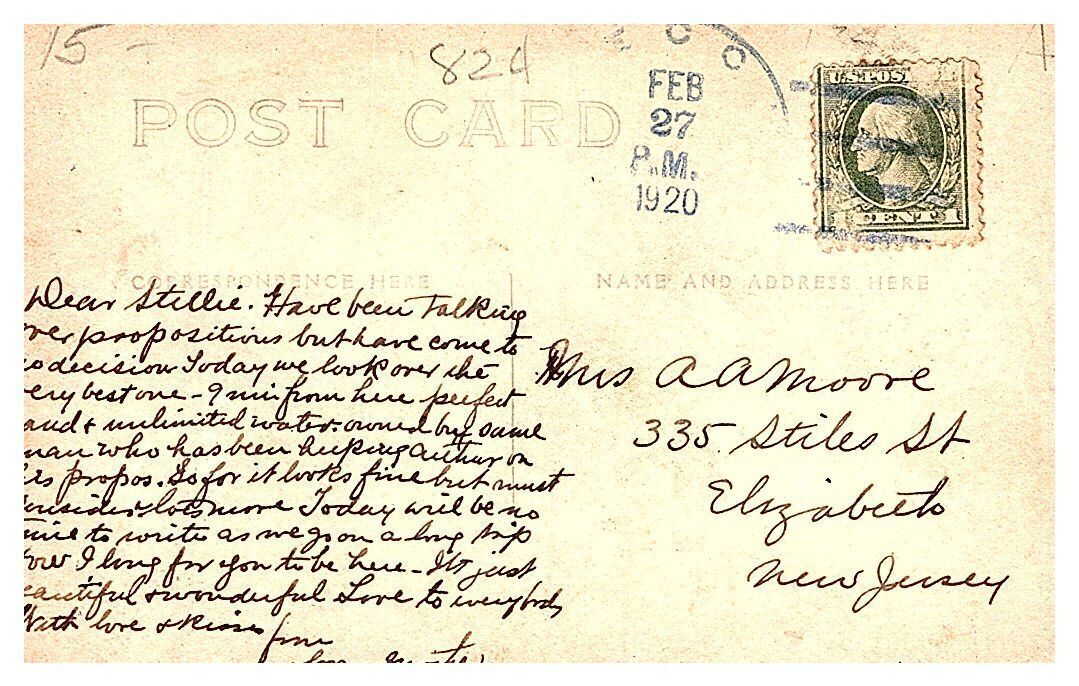 15
824
CO
FEB
27
P.M.
1920
U.S.POS
1 CENT 1
POST CARD
CORRESPONDENCE HERE
NAME AND ADDRESS HERE
Dear Stellie. Have been talking
ver propositions but have come to
o decision Today we look over the
ery best one - 9 min from here perfect
and & unlimited water - owned by same
man who has been helping Arthur on
is propos. So far it looks fine but must
onsider lots more Today will be no
time to write as we go on a long trip
ow I long for you to be here - It's just
eautiful & wonderful Love to everybody
With love & kisses
from
Mrs A A Moore
335 Stiles St
Elizabeth
New Jersey